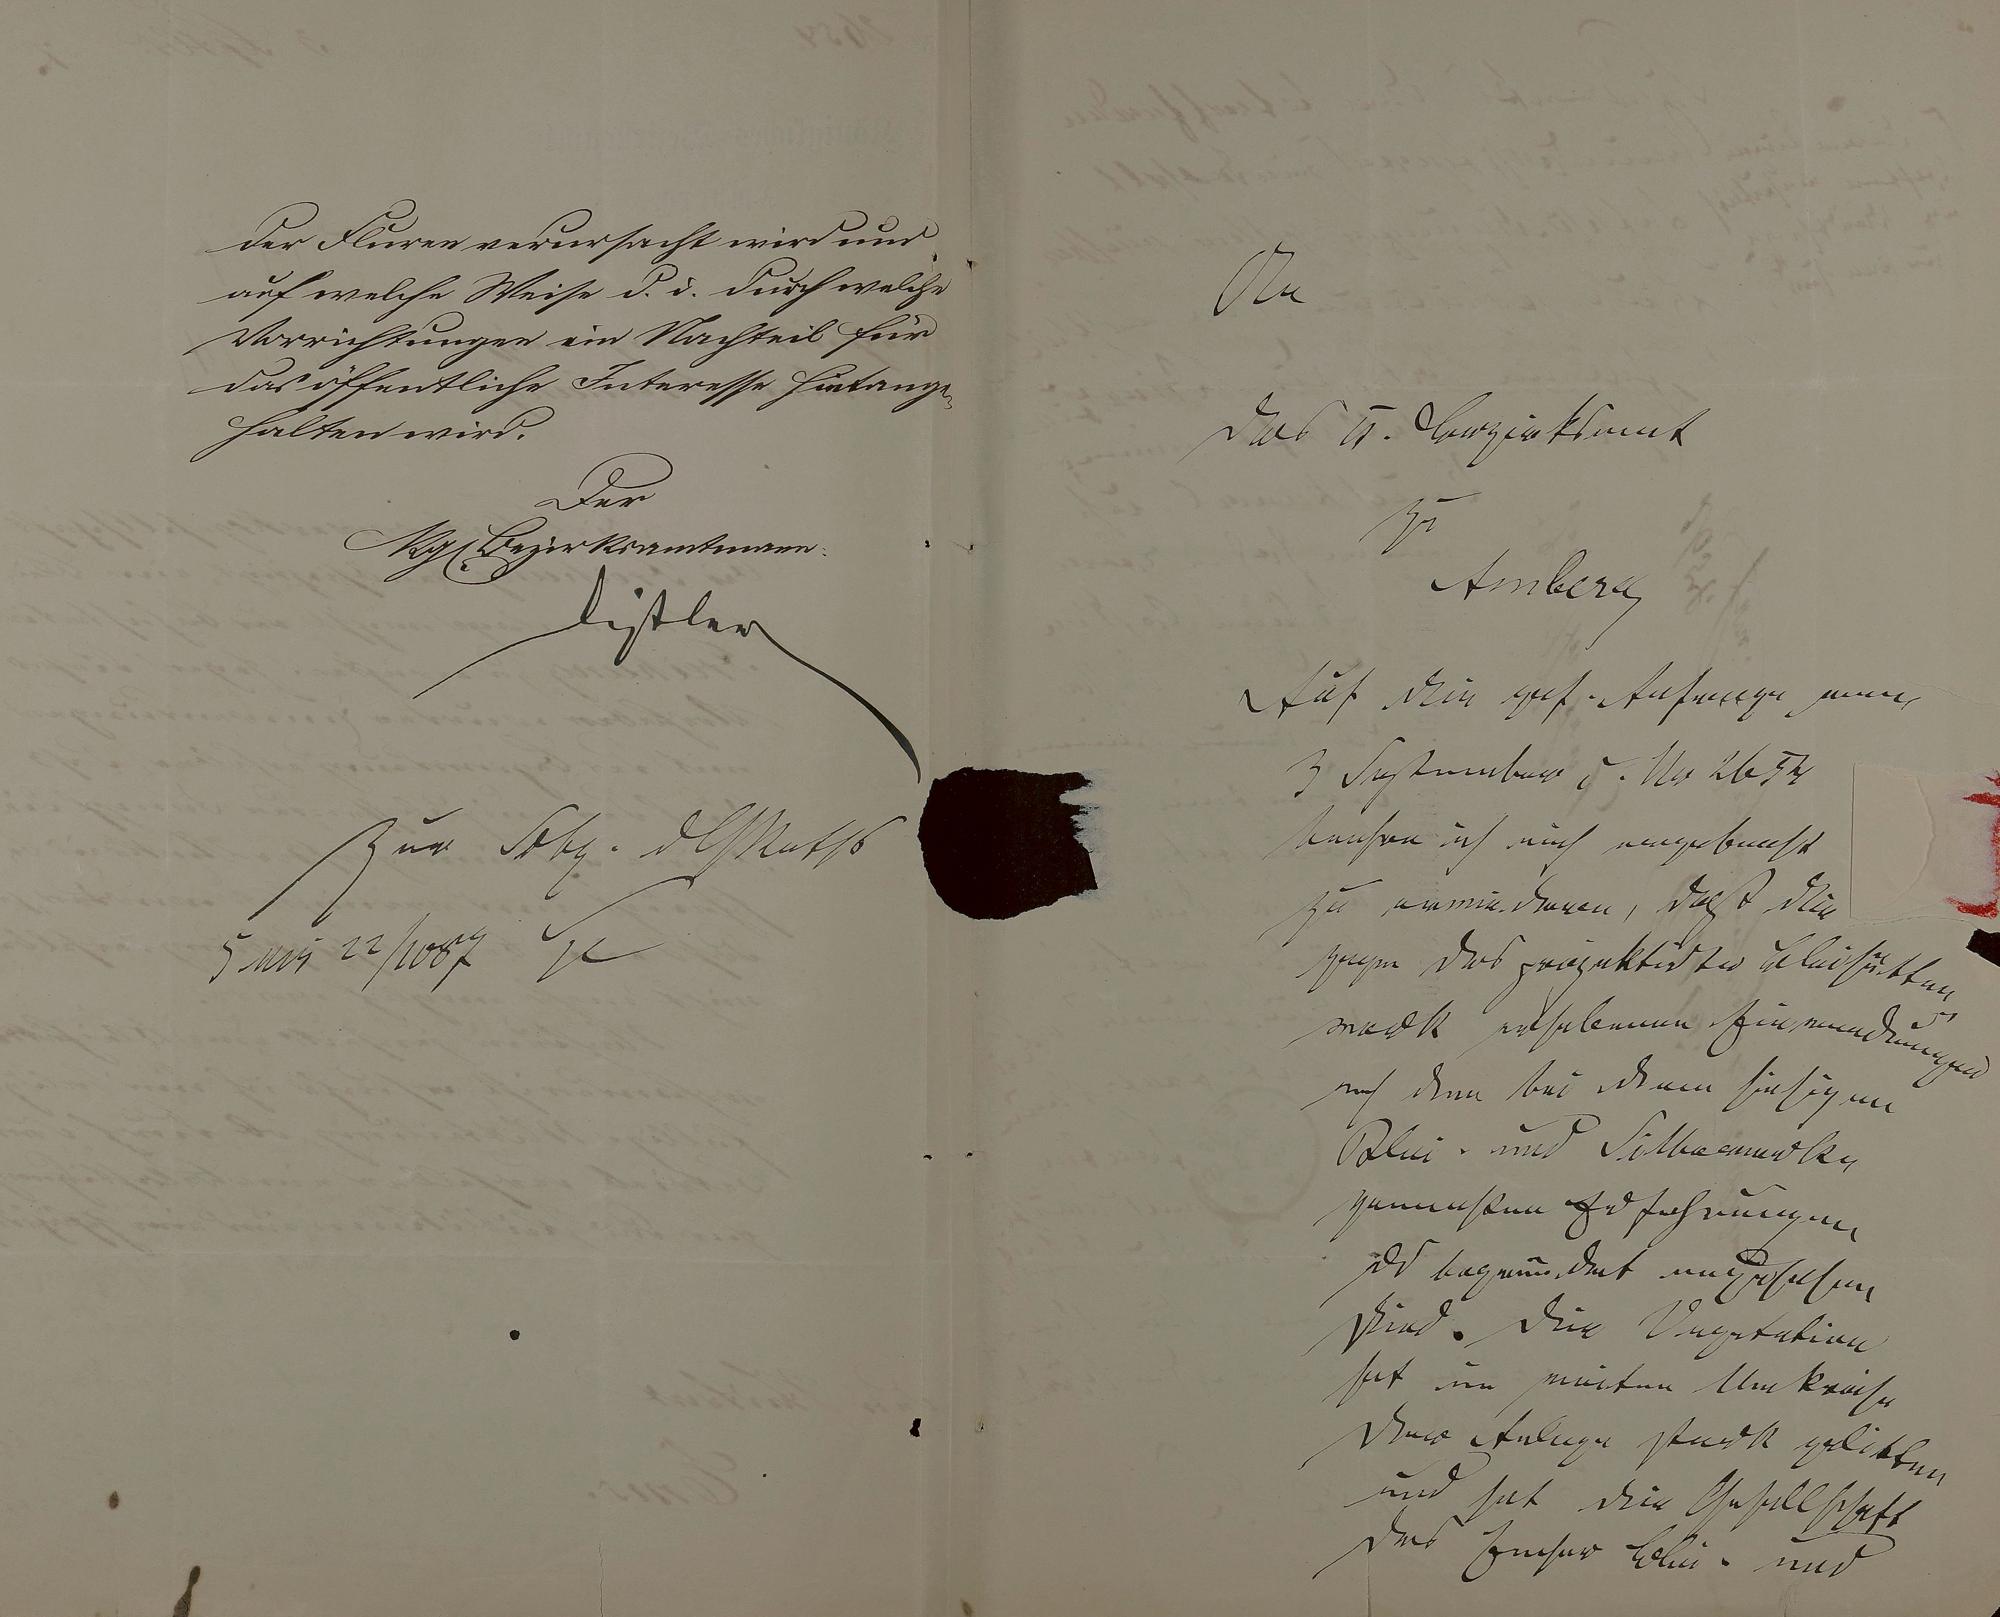 der Fluren verursacht wird und
auf welche Weise d. i. durch welche
Vorrichtungen ein Nachteil für
das öffentliche Interesse hintange-
halten wird.
Der
Kgl. Bezirksamtmann:
Distler
Zur Sitzg.
An
das K. Bezirksamt
zu
Amberg
Auf die gef. Anfrage vom
3 September c. No 2654
beehre ich mich ergebenst
zu erwiedern, daß die
gegen das projektirte Bleihütten
werk erhobenen Einwendungen
nach den bei dem hiesigen
Blei- und Silberwerke
gemachten Erfahrungen
als begründet anzusehen
sind. Die Vegetation
hat im weiten Umkreise
der Anlage stark gelitten
und hat die Gesellschaft
des Emser Blei- und